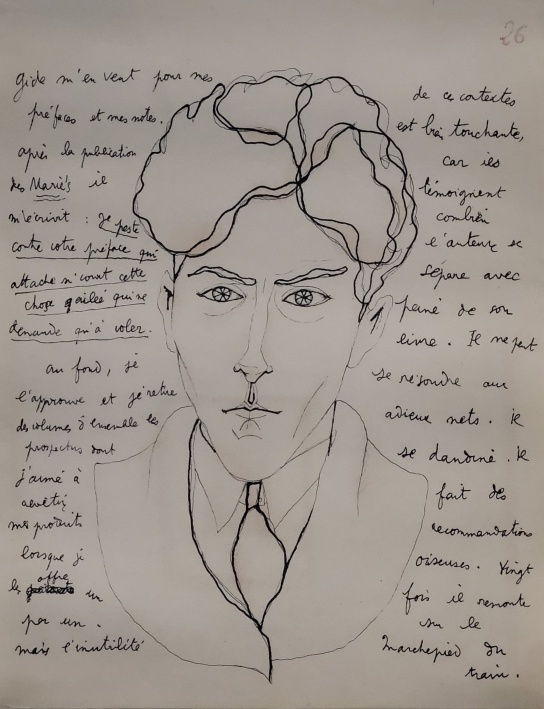 26
Gide m'en veut pour mes
préfaces et mes notes.
après la publication
des Mariés il
m'écrivit : Je peste
contre votre préface qui
attache si court cette
chose ailée qui ne
demande qu'à voler.
au fond, je
l'approuve et je retire
des volumes d'ensemble les
prospectus dont
j'aime à
mes produits
lorsque je
offre
les un
par un.
mais l'inutilité
de ces
est bien touchante,
car ils
témoignent
combien
l'auteur se
sépare avec
peine de son
livre. Il ne peut
se résoudre aux
adieux nets. il
se dandine. Il
fait des
recommandations
oiseuses. Vingt
fois il remonte
sur le
marchepied du
train.